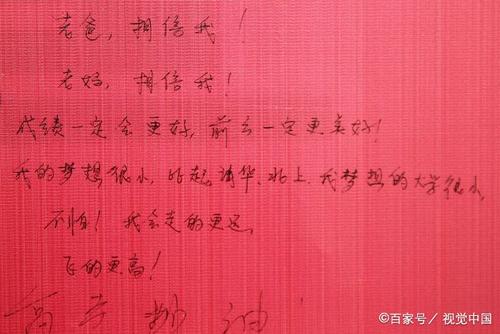 老爸，相信我！
老妈，相信我！
成绩一定会更好，一定更美好！
我的梦想很小，比起清华、北上，我梦想的大学很小，
不怕！我会走的更远，
飞的更高！
高考加油！
©百家号／视觉中国